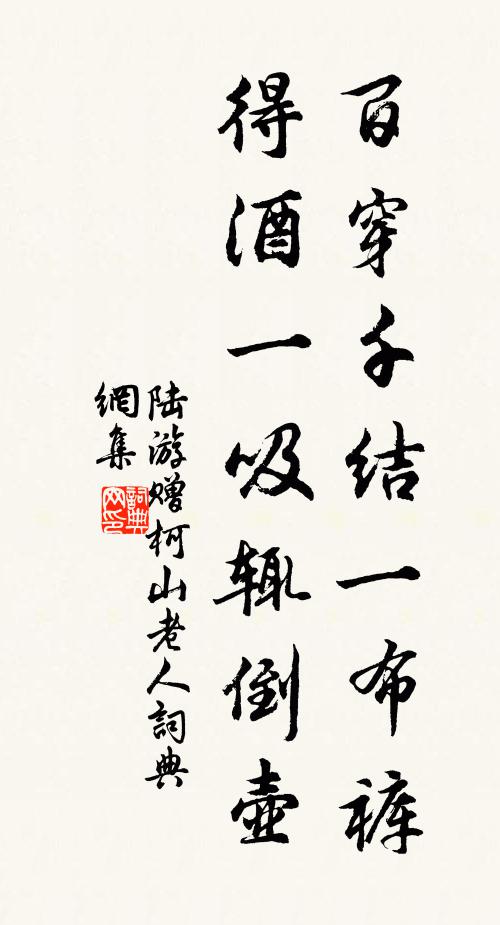 百穿千结一布裤
得酒一吸辄倒壶
陆游赠柯山老人詞典
網集
詞典
网印